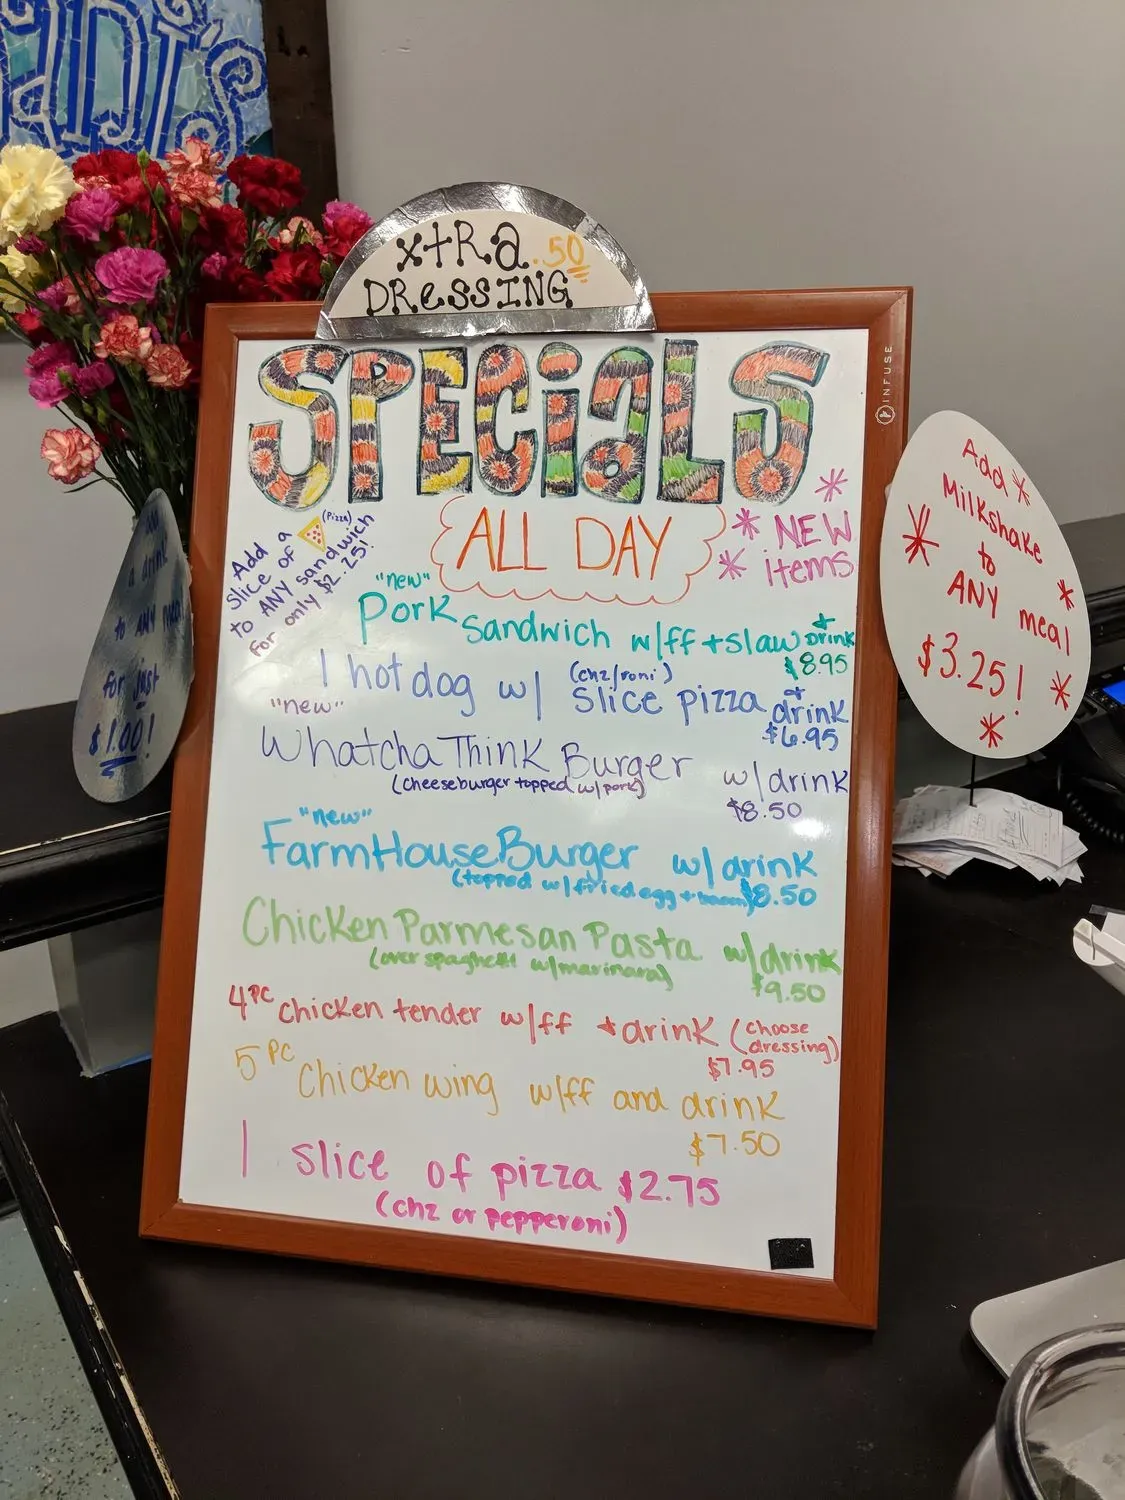 DI'S
xtRa .50
DRessING
SPECiaLS
ALL DAY
* NEW
* items
*
Add
slice of a (Pizza)
to ANY sandwich
for only $2.25!
"new"
Pork sandwich w/ff + slaw + Drink
$8.95
1 hot dog w/ (chz/roni) slice pizza + drink
$6.95
"new"
Whatcha Think Burger w/drink
(cheeseburger topped w/pork)
$8.50
"new"
FarmHouse Burger w/drink
(topped w/fried egg + bacon) $8.50
Chicken Parmesan Pasta w/drink
(over spaghetti w/marinara)
$9.50
4PC chicken tender w/ff + drink (choose dressing)
$7.95
5 PC Chicken wing w/ff and drink
$7.50
1 slice of pizza $2.75
(chz or pepperoni)
INFUSE
Add *
Milkshake
* to
ANY meal *
$3.25! *
*
a drink
to ANY meal
for just
$1.00!